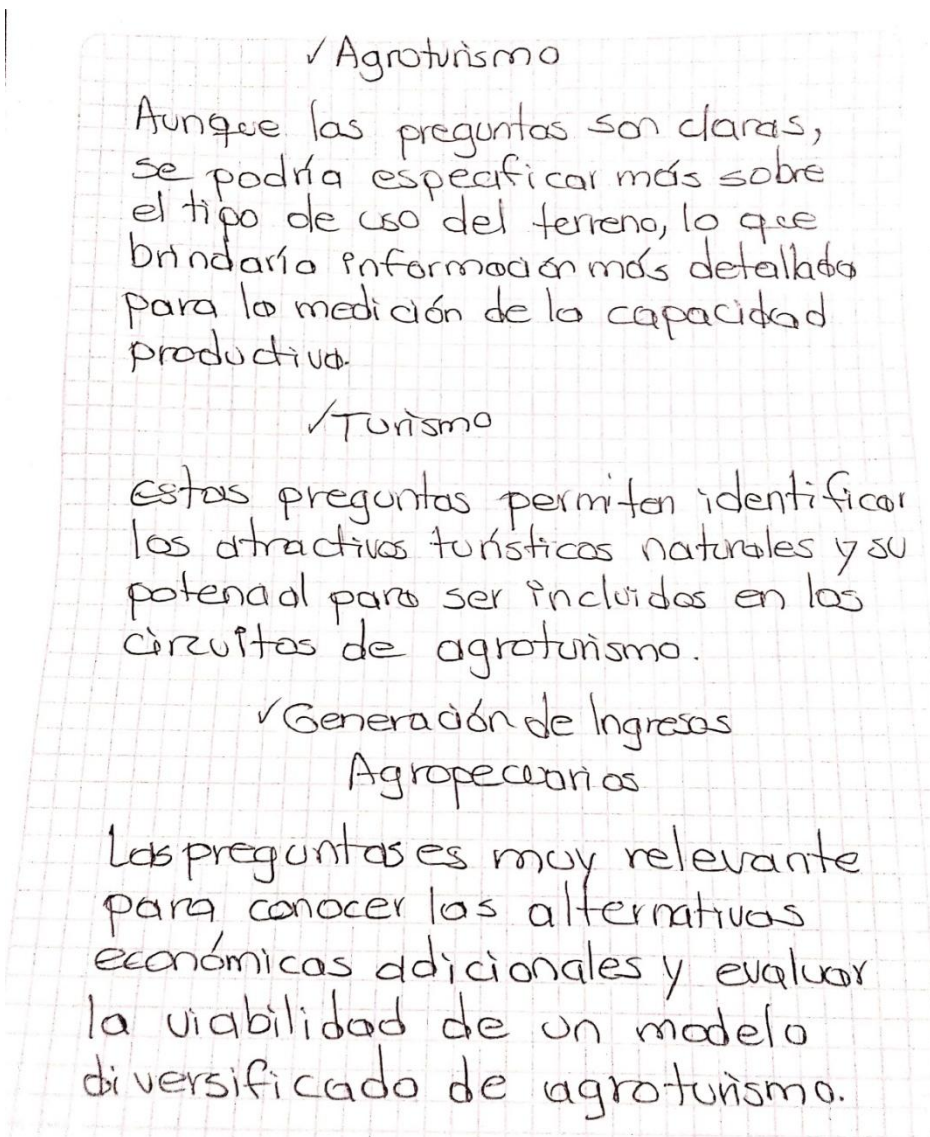 ✓ Agroturismo
Aunque las preguntas son claras,
se podría especificar más sobre
el tipo de uso del terreno, lo que
brindaría información más detallada
para la medición de la capacidad
productiva.
✓ Turismo
Estas preguntas permiten identificar
los atractivos turísticos naturales y su
potencial para ser incluidos en los
circuitos de agroturismo.
✓ Generación de Ingresos
Agropecuarios
Las preguntas es muy relevante
para conocer las alternativas
económicas adicionales y evaluar
la viabilidad de un modelo
diversificado de agroturismo.